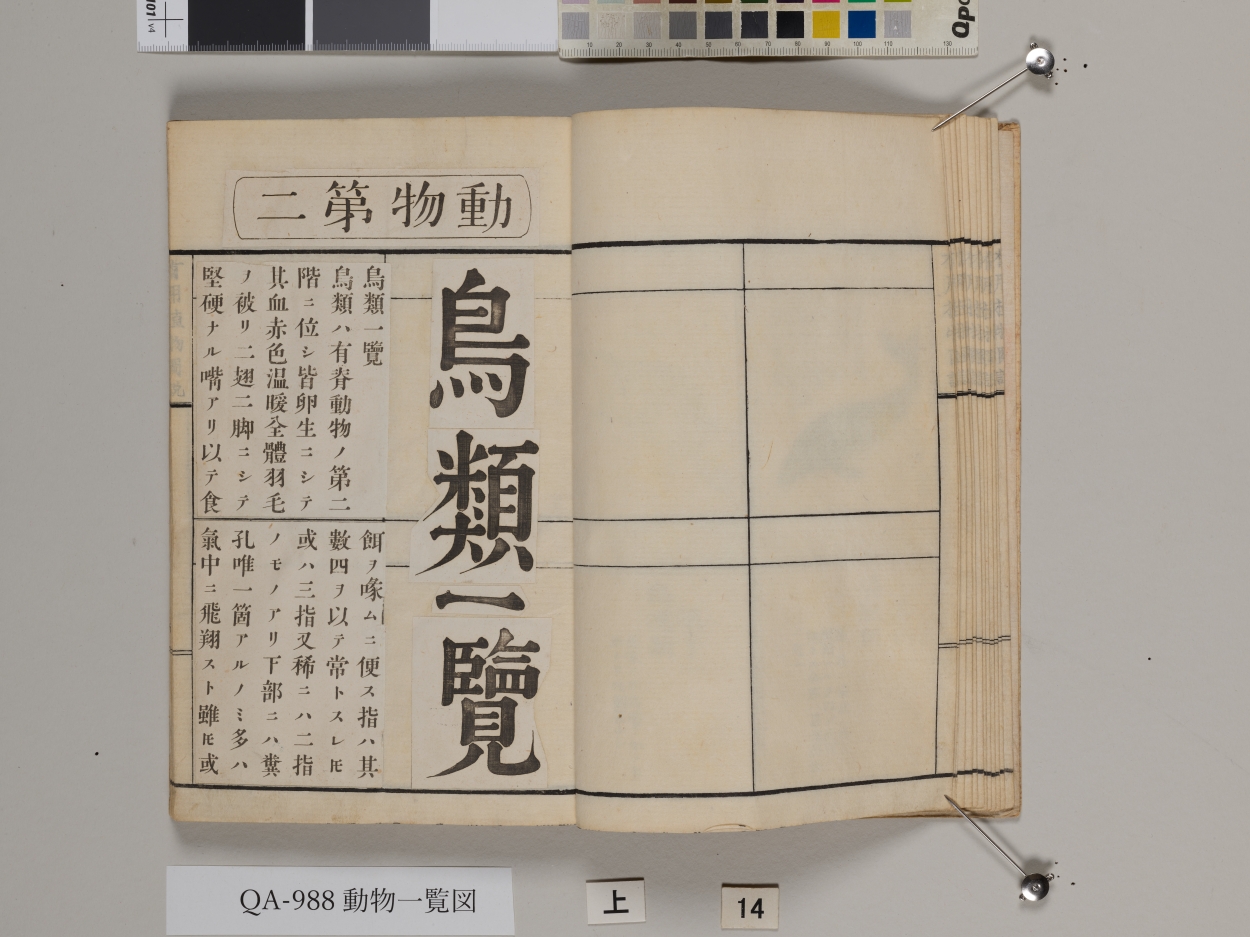 動物第二
鳥類一覽
鳥類一覽
鳥類ハ有脊動物ノ第二
階ニ位シ皆卵生ニシテ
其血赤色温暖全體羽毛
ノ被リ二翅二脚ニシテ
堅硬ナル嘴アリ以テ食
餌ヲ喙ムニ便ス指ハ其
數四ヲ以テ常トスレ𪜈
或ハ三指又稀ニハ二指
ノモノアリ下部ニハ糞
孔唯一箇アルノミ多ハ
氣中ニ飛翔スト雖𪜈或
QA-988 動物一覧図
上
14
10 20 30 40 50 60 70 80 90 100 110 130